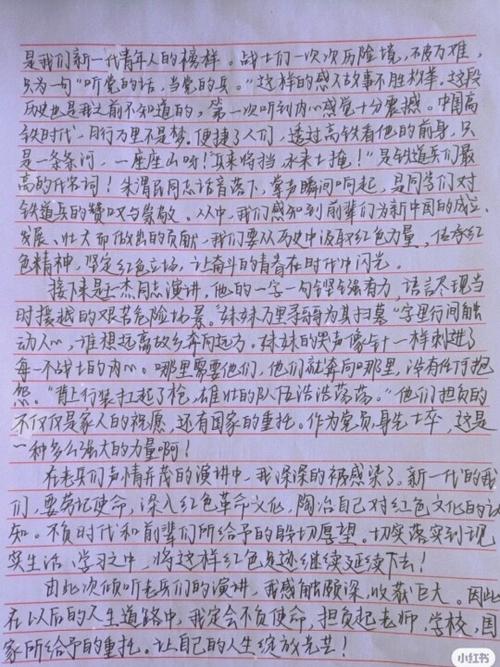 是我们新一代青年人的榜样。战士们一次次历险境,不畏万难,
只为一句“听党的话,当党的兵。”这样的感人故事不胜枚举。这段
历史也是我之前不知道的,第一次听到内心感觉十分震撼。中国高
铁时代,日行万里不是梦。便捷了人们,透过高铁看他的前身,只
是一条条河,一座座山呀!“兵来将挡,水来土掩!”是铁道兵们最
高的代名词!朱渭民同志话音落下,掌声瞬间响起,是同学们对
铁道兵的赞叹与崇敬。从中,我们感知到前辈们为新中国的成立、
发展、壮大而做出的贡献,我们要从历史中汲取红色力量,传承红
色精神,坚定红色立场,让奋斗的青春在时代中闪光。
接下来是 杰同志演讲,他的一字一句铿锵有力,语言尽现当
时援越的艰苦危险场景。“妹妹万里寻 为其扫墓”字里行间触
动人心,谁想远离故乡奔向远方。妹妹的哭声像针一样刺进了
每一个战士的内心。哪里需要他们,他们就奔向哪里,没有任何抱
怨。“背上行装扛起了枪,雄壮的队伍浩浩荡荡。”他们担负的
不仅仅是家人的祝愿,还有国家的重托。作为党员身先士卒,这是
一种多么强大的力量啊!
在老兵们声情并茂的演讲中,我深深的被感染了。新一代的我
们,要牢记使命,深入红色革命文化,陶冶自己对红色文化的认
知。不负时代和前辈们所给予的殷切厚望。切实落实到现
实生活、学习之中,将这样红色足迹继续延续下去!
由此次倾听老兵们的演讲,我感触颇深,收获巨大。因此
在以后的人生道路中,我定会不负使命,担负起老师、学校、国
家所给予的重托。让自己的人生绽放光芒!
小红书